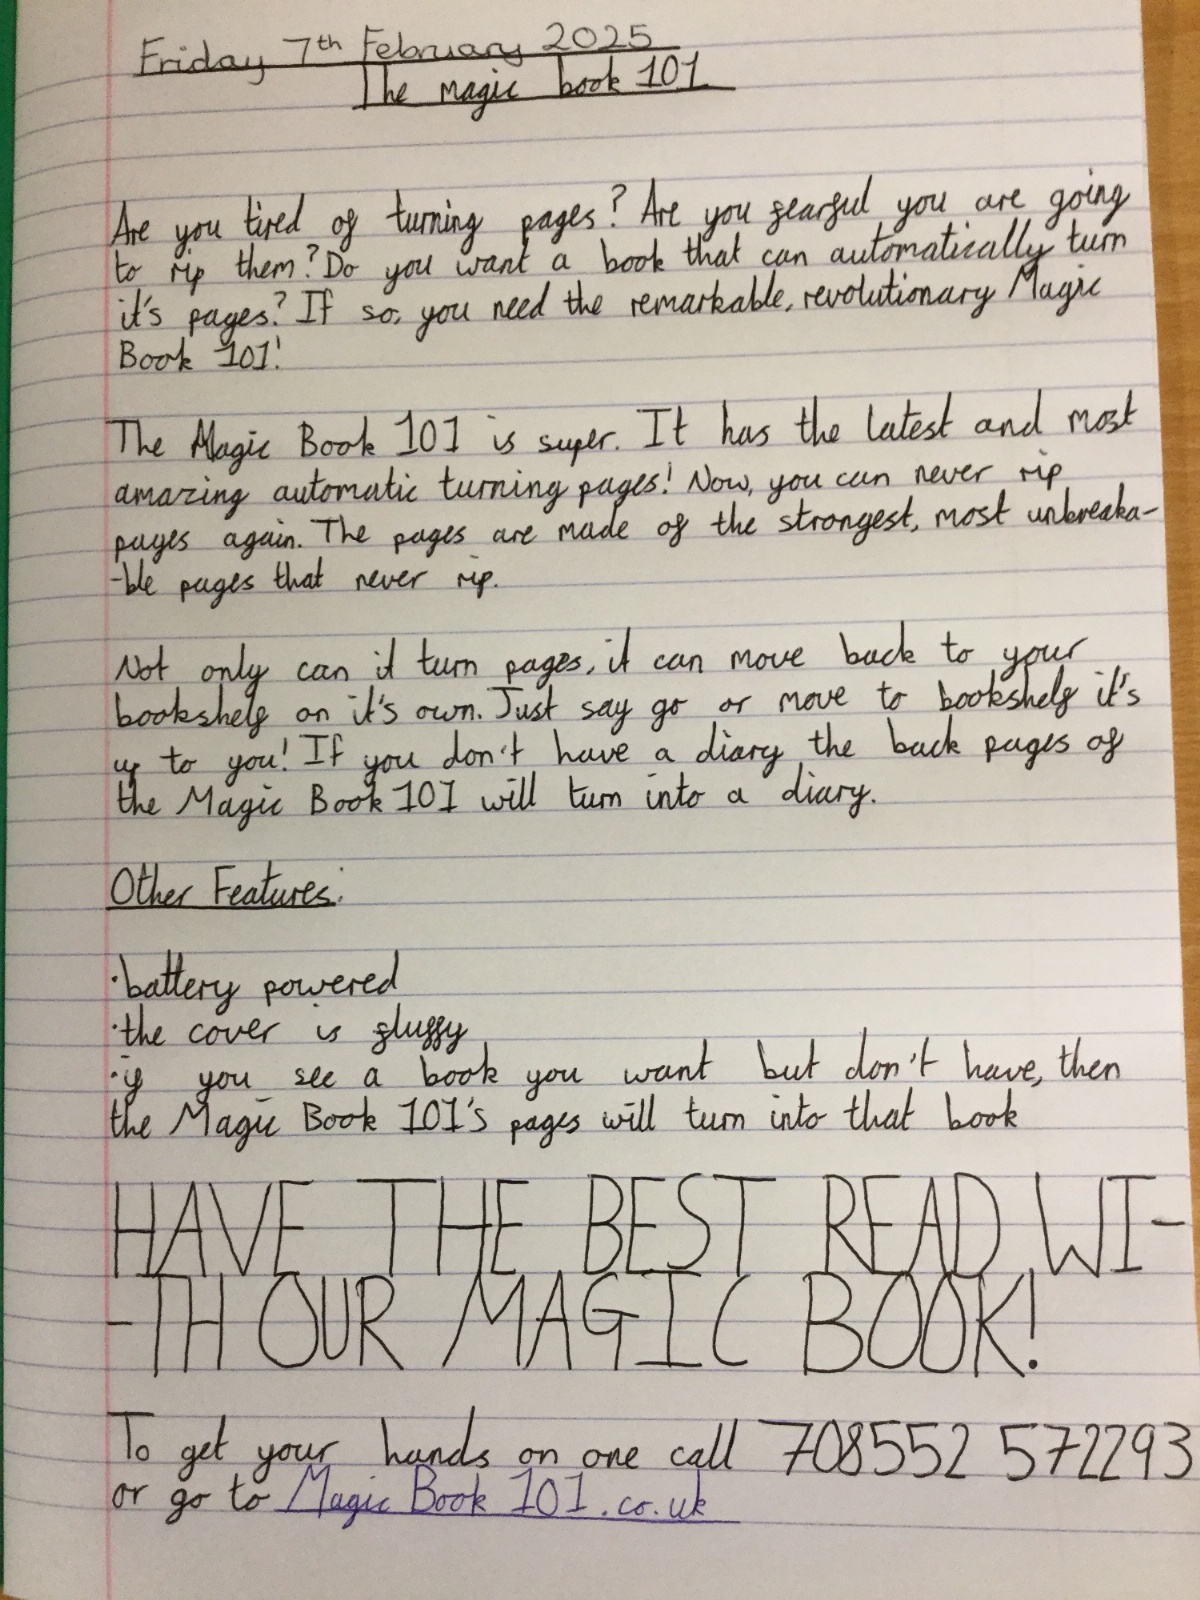 Friday 7th February 2025
The magic book 101
Are you tired of turning pages? Are you fearful you are going
to rip them? Do you want a book that can automatically turn
it's pages? If so, you need the remarkable, revolutionary Magic
Book 101!
The Magic Book 101 is super. It has the latest and most
amazing automatic turning pages! Now, you can never rip
pages again. The pages are made of the strongest, most unbreaka-
-ble pages that never rip.
Not only can it turn pages, it can move back to your
bookshelf on it's own. Just say go or move to bookshelf it's
up to you! If you don't have a diary the back pages of
the Magic Book 101 will turn into a diary.
Other Features:
·battery powered
·the cover is fluffy
·if you see a book you want but don't have, then
the Magic Book 101's pages will turn into that book
HAVE THE BEST READ WI-
-TH OUR MAGIC BOOK!
To get your hands on one call 708552 572293
or go to Magic Book 101.co.uk